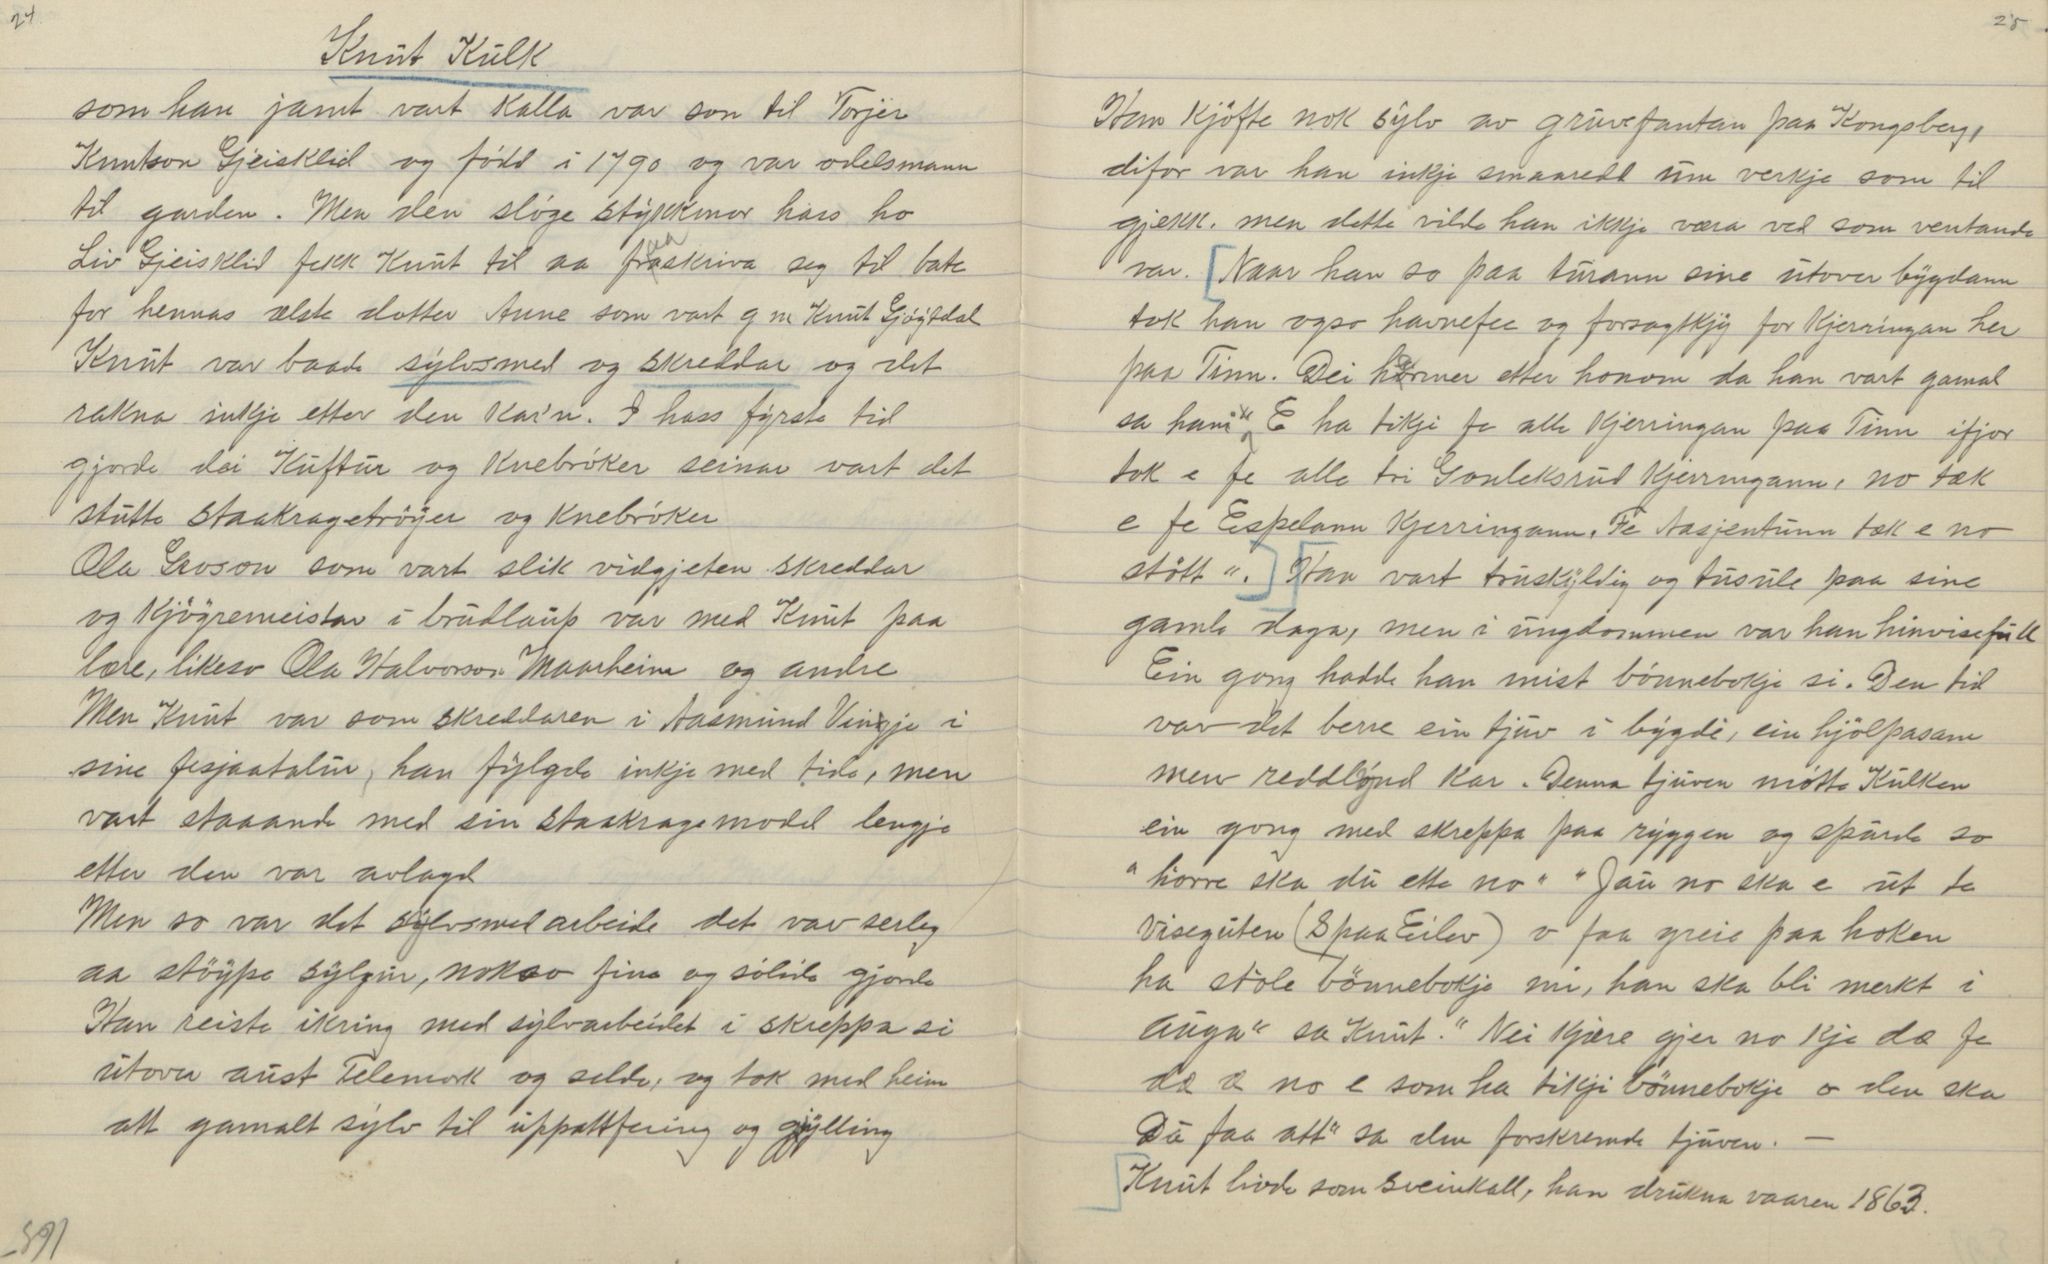 24
Knut Kulk
som han jamt vart kalla var son til Torjer
Knutson Gjeisklid og född i 1790 og var odelsmann
til garden. Men den slöge stykkmor hass ho
Liv Gjeisklid fekk Knut til aa fraaskriva seg til bate
for hennas elste dotter Anne som vart g m Knut Gjöystdal
Knut var baade sylvsmed og skreddar og det
rakna inkje etter den kar'n. I hass fyrste tid
gjorde dei Kuftur og Knebröker seinar vart det
stutte staakragetröyer og Knebröker
Ola Groson som vart slik vidgjeten skreddar
og Kjögremeistar i brudlaup var med Knut paa
lære, likeso Ola Halvorson Maarheim og andre
Men Knut var som skreddaren i Aasmund Vinje i
sine fesjaatalur, han fylgde inkje med tide, men
vart staaande med sin staakragemodel lengje
etter den var avlagd
Men so var det sylvsmedarbeide det var serleg
aa stöype sylgur, nokso fine og solide gjorde
Han reiste ikring med sylvarbeidet i skreppa si
utover aust Telemork og selde, og tok med heim
att gamalt sylv til uppattfering og gylling
1891
25
Han Kjöfte nok sylv av gruvefantan paa Kongsberg,
difor var han inkje smaaredd um verkje som til
gjekk. men dette vilde han ikkje væra ved som ventande
var. Naar han so paa turann sine utover bygdann
tok han ogso havnefee og forsagtkjy for Kjerringan her
paa Tinn. Dei hermer etter honom da han vart gamal
sa han: "E ha tikji fe alle Kjerringan paa Tinn ifjor
tok e fe alle tri Gauleksrud Kjerringann, no tæk
e fe Espelann Kjerringann. Fe Aasjentunn tæk e no
stött". Han vart truskyldig og tusule paa sine
gamle daga, men i ungdommen var han hinvisefull
Ein gong hadde han mist bönnebokje si. Den tid
var det berre ein tjuv i bygdè, ein hjölpasam
men reddlynd kar. Denna tjuven mötte Kulken
ein gong med skreppa paa ryggen og spurde so
"horre ska du ette no" "Jau no ska e ut te
Viseguten (SpaaEilev) o faa greie paa hoken
ha stole bönnebokje mi, han ska bli merkt i
auga" sa Knut. "Nei Kjære gjer no kje dæ fe
dæ æ no e som ha tikji bönnebokje o den ska
Du faa att" sa den forskremde tjuven. —
Knut livde som sveinkall, han drukna vaaren 1863.